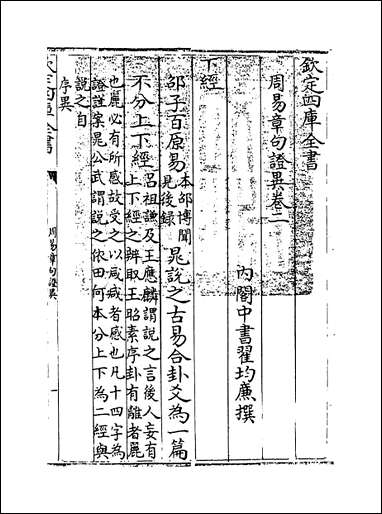 欽定四庫全書
周易章句證異卷二
內閣中書翟均廉撰
下經
邵子百原易本邵博聞見後錄晁說之古易合卦爻為一篇
不分上下經呂祖謙及王應麟謂說之言後人妄有上下經之辨取王昭素序卦有離者麗
也麗必有所感故受之以咸咸者感也凡十四字為
證註案晁公武謂說之依田何本分上下為二經與
說之自
序異
欽定四庫全書
周易章句證異
一